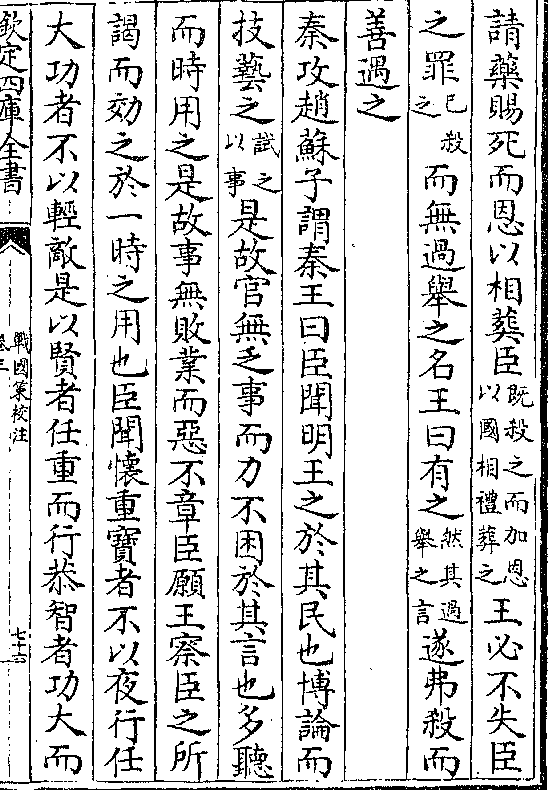 請藥賜死而恩以相葬臣既殺之而加恩以國相禮葬之王必不失臣
之罪已殺之而無過舉之名王曰有之然其過舉之言遂弗殺而
善遇之
秦攻趙蘇子謂秦王曰臣聞明王之於其民也博論而
技藝之試之以事是故官無乏事而力不困於其言也多聽
而時用之是故事無敗業而惡不章臣願王察臣之所
謁而効之於一時之用也臣聞懷重寶者不以夜行任
大功者不以輕敵是以賢者任重而行恭智者功大而
欽定四庫全書
戰國策校注
卷三
七十六